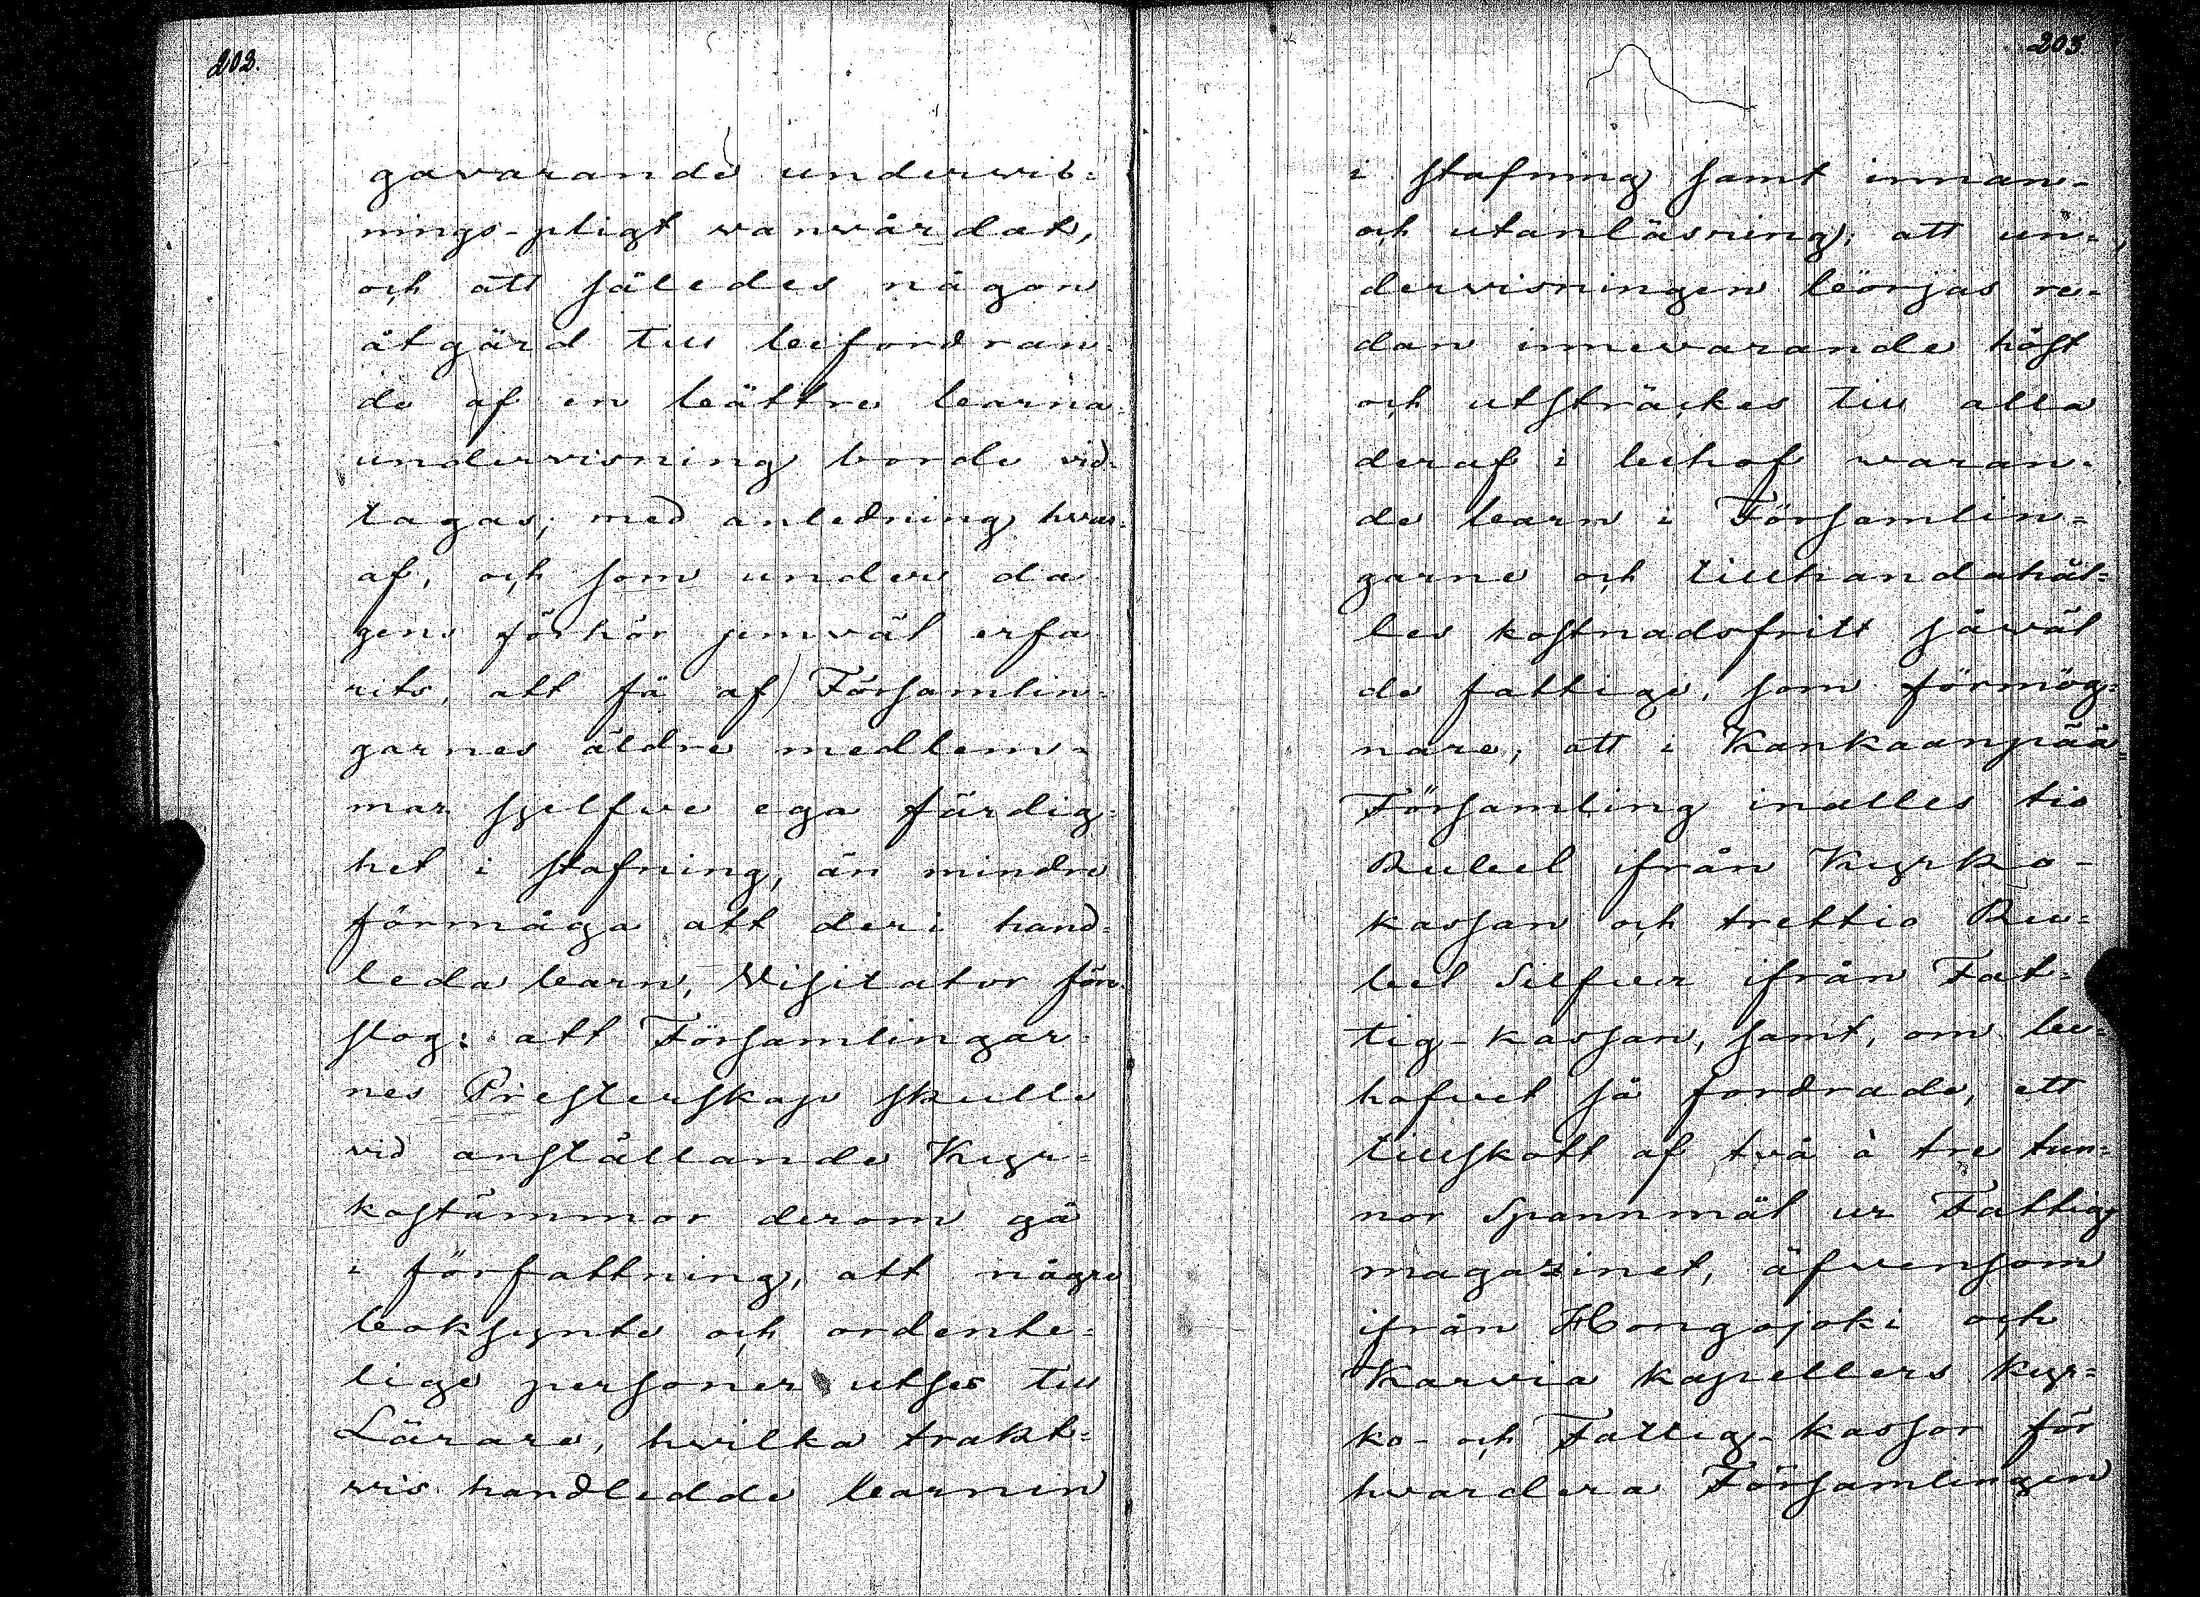 202.
gavarande underwis=
nings-pligt wanwårdats,
och att således någon
åtgärd till befordran=
de af en bättre barna=
undervisning borde vid=
tagas; med anledning hvar=
af, och som under da=
gens förhör jemväl erfa=
rits, att få af Församlin=
garnes äldre medlem=
mar sjelfve ega färdig=
het i stafning, än mindre
förmåga att deri hand=
leda barn, Visitator före=
slog: att Församlingar=
nes Presterskap skulle
vid anställande Kyr=
kostämmor derom gå
i författning, att någre
boksynte och ordente=
lige personer utses till
Lärare, hvilka trakt=
vis handledde barnen
203
i stafning samt innan-
och utanläsning; att un=
dervisningen börjas re=
dan innevarande höst
och utsträckes till alla
deraf i behof waran=
de barn i Församlin=
garne och tillhandahål=
les kostnadsfritt såwäl
de fattige, som förmög=
nare; att i Kankaanpää=
Församling inalles tio
Rubel ifrån Kyrko-
kassan och trettio Ru=
bel Silfver ifrån Fat=
tig-kassan, samt, om be=
hofvet så fordrade, ett
tillskott af två à tre tun=
nor Spannmål ur Fattig
magazinet, äfvensom
ifrån Hongojoki och
Karvia kapellers kyr=
ko- och Fattig-kassor för
hvardera Församlingen